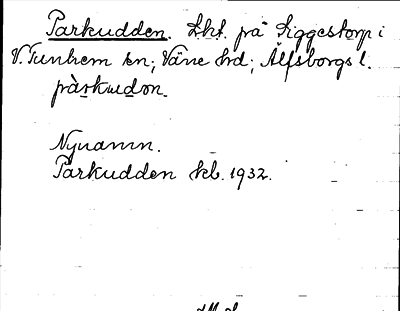 Parkudden. Lht. på Siggestorp i
V. Tunhem sn; Väne hd; Älfsborgs l.
pàrkudən.
Nynamn.
Parkudden kb. 1932.